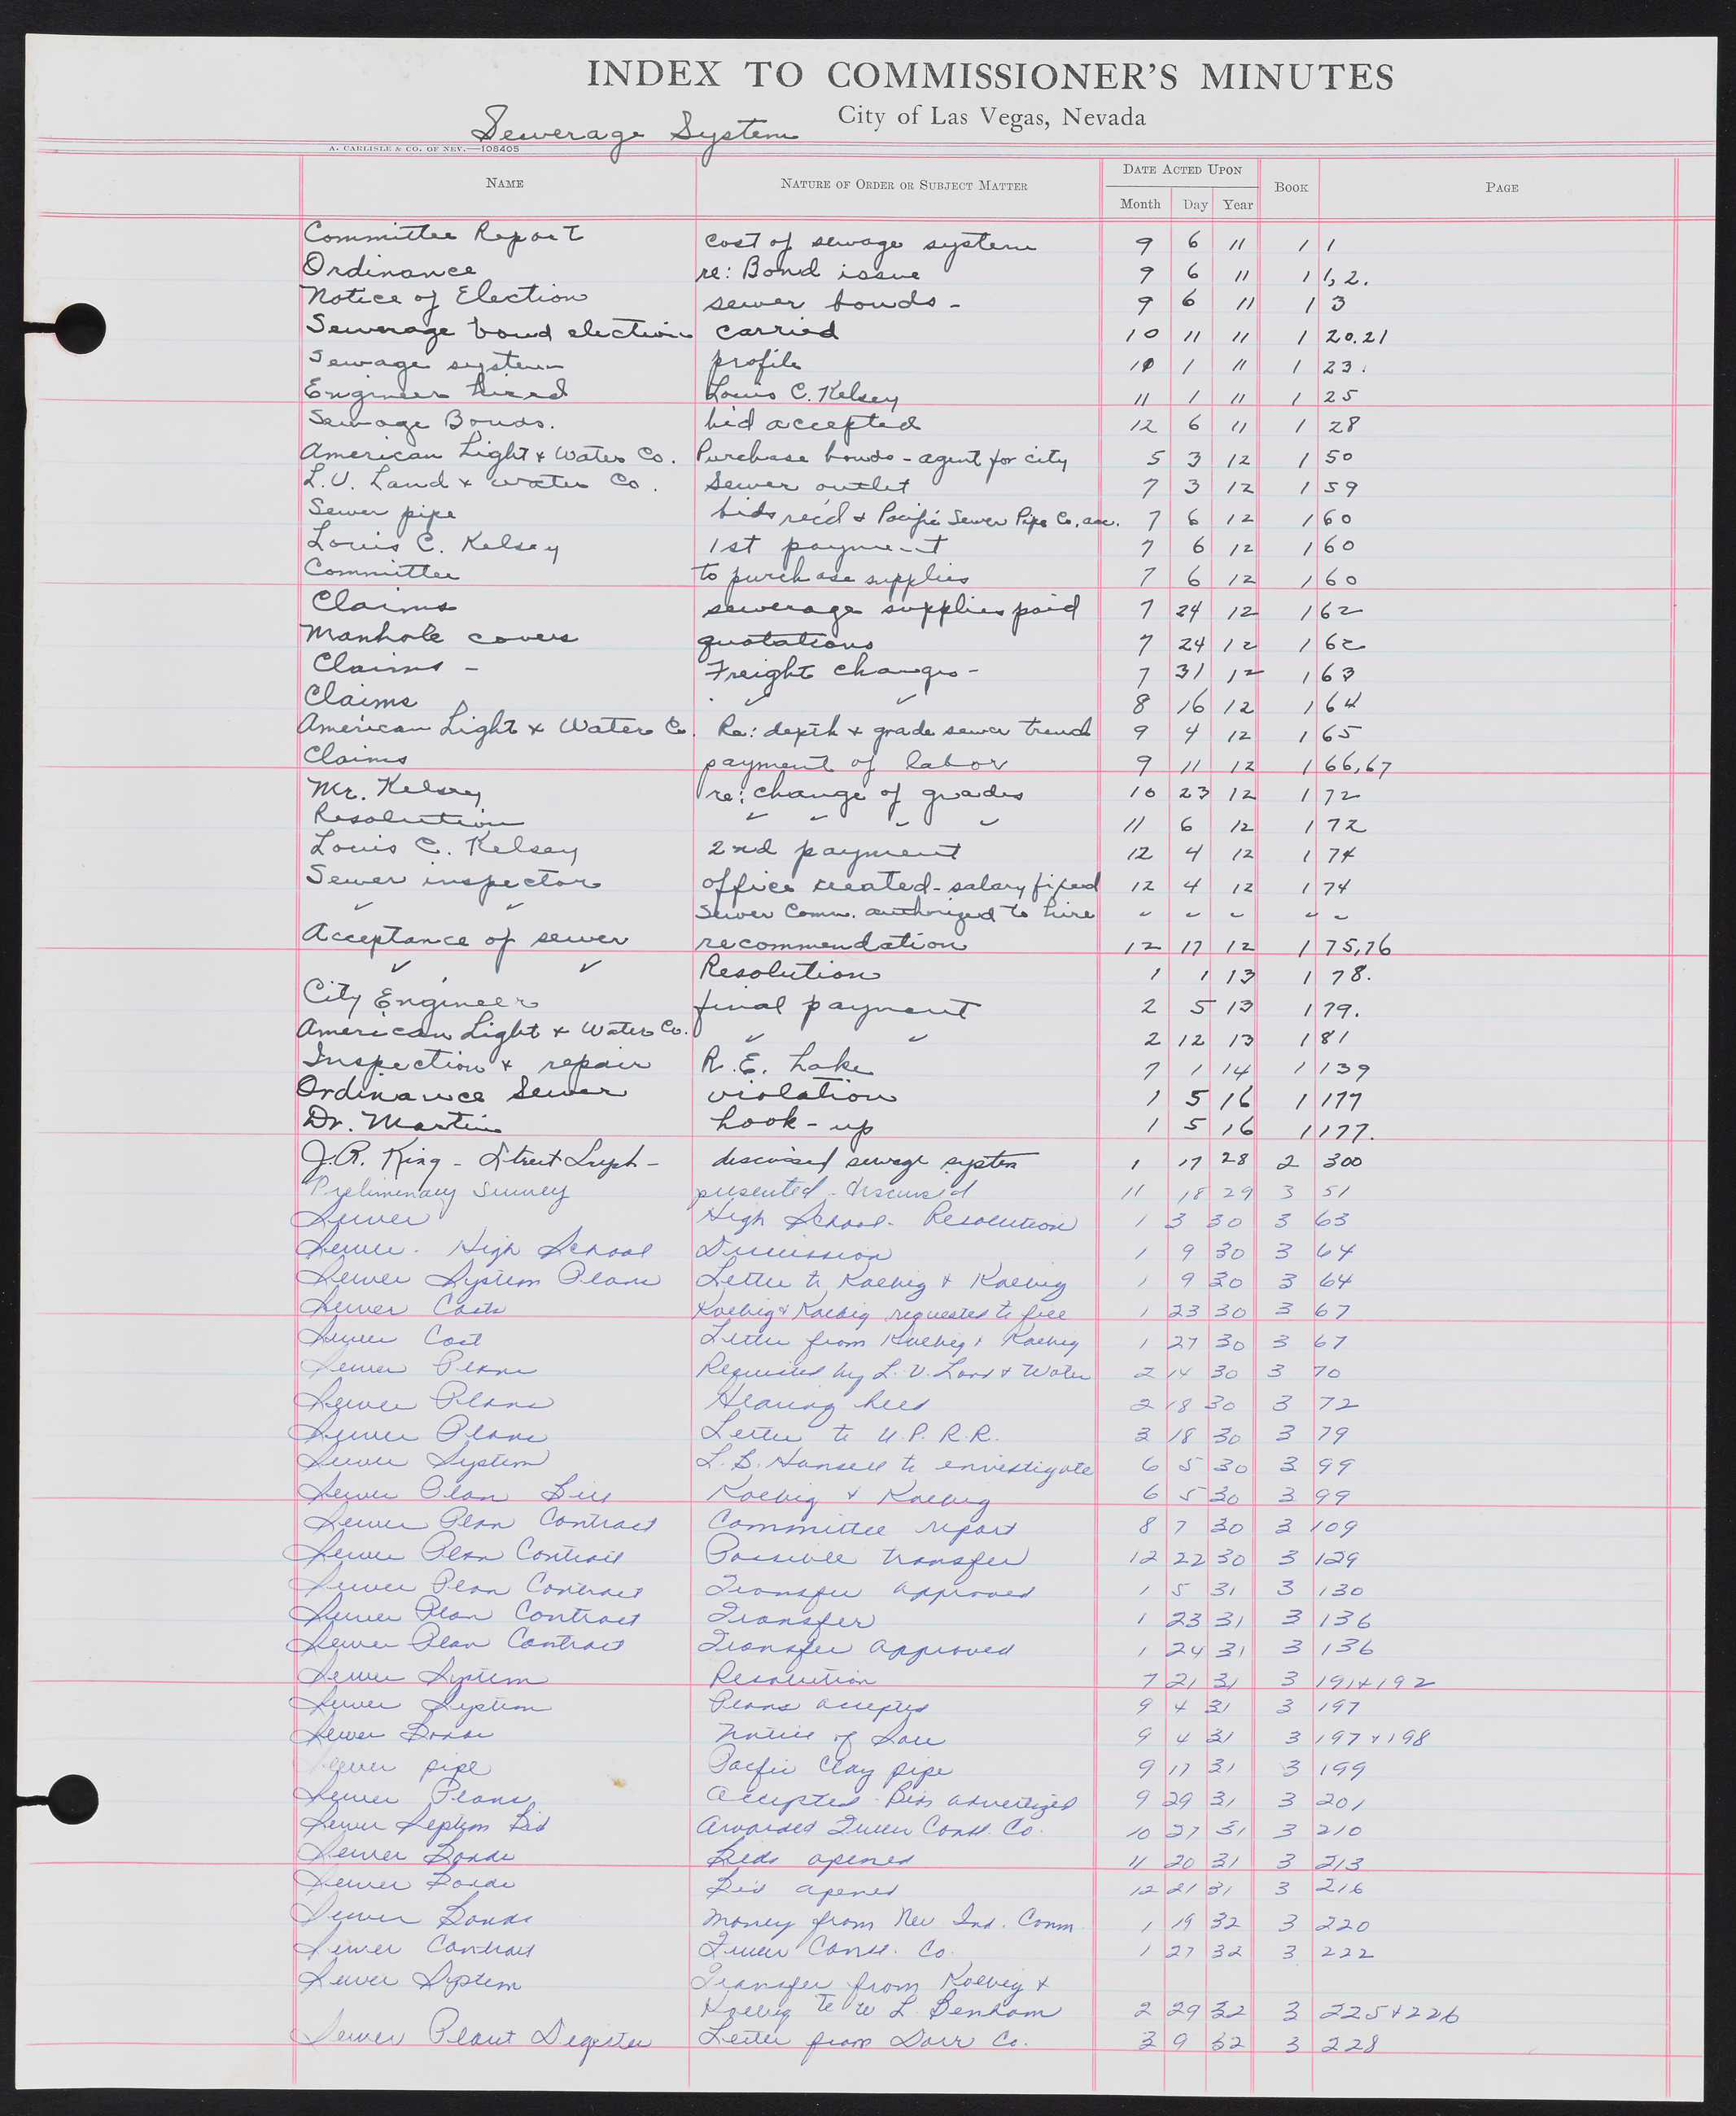 INDEX TO COMMISSIONER'S MINUTES
City of Las Vegas, Nevada
Sewerage System
A. CARLISLE & CO. OF NEV.—108405
NAME NATURE OF ORDER OR SUBJECT MATTER DATE ACTED UPON BOOK PAGE
Month Day Year
Committee Report cost of sewage system 9 6 11 1 1
Ordinance re: Bond issue 9 6 11 1 1, 2.
Notice of Election sewer bonds - 9 6 11 1 3
Sewerage bond election carried 10 11 11 1 20.21
Sewage system profile 10 1 11 1 23.
Engineer hired Louis C. Kelsey 11 1 11 1 25
Sewage Bonds. bid accepted 12 6 11 1 28
American Light & Water Co. Purchase bonds - agent for city 5 3 12 1 50
L.V. Land & water Co. Sewer outlet 7 3 12 1 59
Sewer pipe bids rec'd & Pacific Sewer Pipe Co. acc. 7 6 12 1 60
Louis C. Kelsey 1st payment 7 6 12 1 60
Committee to purchase supplies 7 6 12 1 60
Claims sewerage supplies paid 7 24 12 1 62
Manhole covers quotations 7 24 12 1 62
Claims - Freight charges - 7 31 12 1 63
Claims " " 8 16 12 1 64
American Light & Water Co. Re: depth & grade sewer trench 9 4 12 1 65
Claims payment of labor 9 11 12 1 66,67
Mr. Kelsey re: change of grades 10 23 12 1 72
Resolution " " " " 11 6 12 1 72
Louis C. Kelsey 2nd payment 12 4 12 1 74
Sewer inspector office created - salary fixed 12 4 12 1 74
" " Sewer Comm. authorized to hire " " " " "
Acceptance of sewer recommendation 12 17 12 1 75,76
" " Resolution 1 1 13 1 78.
City Engineer final payment 2 5 13 1 79.
American Light & Water Co. " " 2 12 13 1 81
Inspection & repair R. E. Lake 7 1 14 1 139
Ordinance Sewer violation 1 5 16 1 177
Dr. Martin hook-up 1 5 16 1 177.
J.R. King - Street Supt - discussed sewage system 1 17 28 2 300
Preliminary Survey presented - discussed 11 18 29 3 51
Sewer High School - Resolution 1 3 30 3 63
Sewer - High School Discussion 1 9 30 3 64
Sewer System Plans Letter to Koebig & Koebig 1 9 30 3 64
Sewer Costs Koebig & Koebig requested to file 1 23 30 3 67
Sewer Cost Letter from Koebig & Koebig 1 27 30 3 67
Sewer Plans Requested by L.V. Land & Water 2 14 30 3 70
Sewer Plans Hearing held 2 18 30 3 72
Sewer Plans Letter to U.P. R.R. 3 18 30 3 79
Sewer System L.B. Hansell to envestigate 6 5 30 3 99
Sewer Plan Bill Koebig & Koebig 6 5 30 3 99
Sewer Plan Contract Committee report 8 7 30 3 109
Sewer Plan Contract Possible transfer 12 22 30 3 129
Sewer Plan Contract Transfer approved 1 5 31 3 130
Sewer Plan Contract Transfer 1 23 31 3 136
Sewer Plan Contract Transfer approved 1 24 31 3 136
Sewer System Resolution 7 21 31 3 191+192
Sewer System Plans accepted 9 4 31 3 197
Sewer Bonds Notice of Sale 9 4 31 3 197+198
Sewer pipe Pacfic Clay pipe 9 17 31 3 199
Sewer Plans Accepted - Bids advertized 9 29 31 3 201
Sewer System Bid Awarded Const. Co. 10 27 31 3 210
Sewer Bonds Bids opened 11 20 31 3 213
Sewer Bonds Bid opened 12 21 31 3 216
Sewer Bonds Money from Nev Ind. Comm 1 19 32 3 220
Sewer Contract Const. Co. 1 27 32 3 222
Sewer System Transfer from Koebig &
Koebig to W L Benham 2 29 32 3 225+226
Sewer Plant Digester Letter from Dorr Co. 3 9 32 3 228